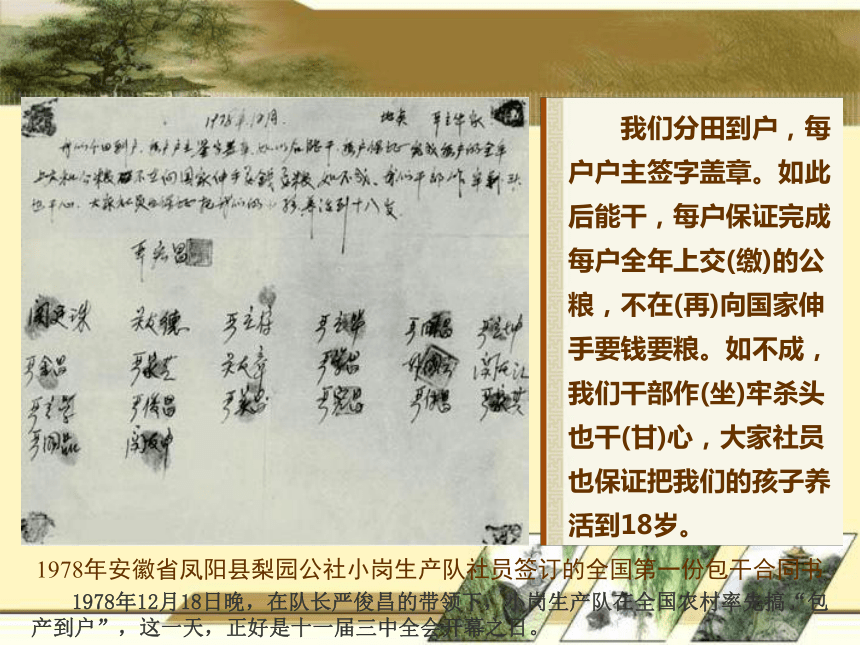 1978年12月. 地点 严立华家
我们分田到户,每户户主签字盖章,如以后能干,每户保证完成每户的全年
上交和公粮,不在向国家伸手要钱要粮,如不成,我们干部作牢剎头
也干心,大家社员也保证把我们的小孩养活到十八岁.
严宏昌
关友德 严立符 严立华 严国昌 严立坤
严金昌 吴友章 关友江
严立学 严俊昌 严美昌 严宏昌 严付昌
严国品 关友申
我们分田到户,每
户户主签字盖章。如此
后能干,每户保证完成
每户全年上交(缴)的公
粮,不在(再)向国家伸
手要钱要粮。如不成,
我们干部作(坐)牢杀头
也干(甘)心,大家社员
也保证把我们的孩子养
活到18岁。
1978年安徽省凤阳县梨园公社小岗生产队社员签订的全国第一份包干合同书
1978年12月18日晚,在队长严俊昌的带领下,小岗生产队在全国农村率先搞“包
产到户”,这一天,正好是十一届三中全会开幕之日。